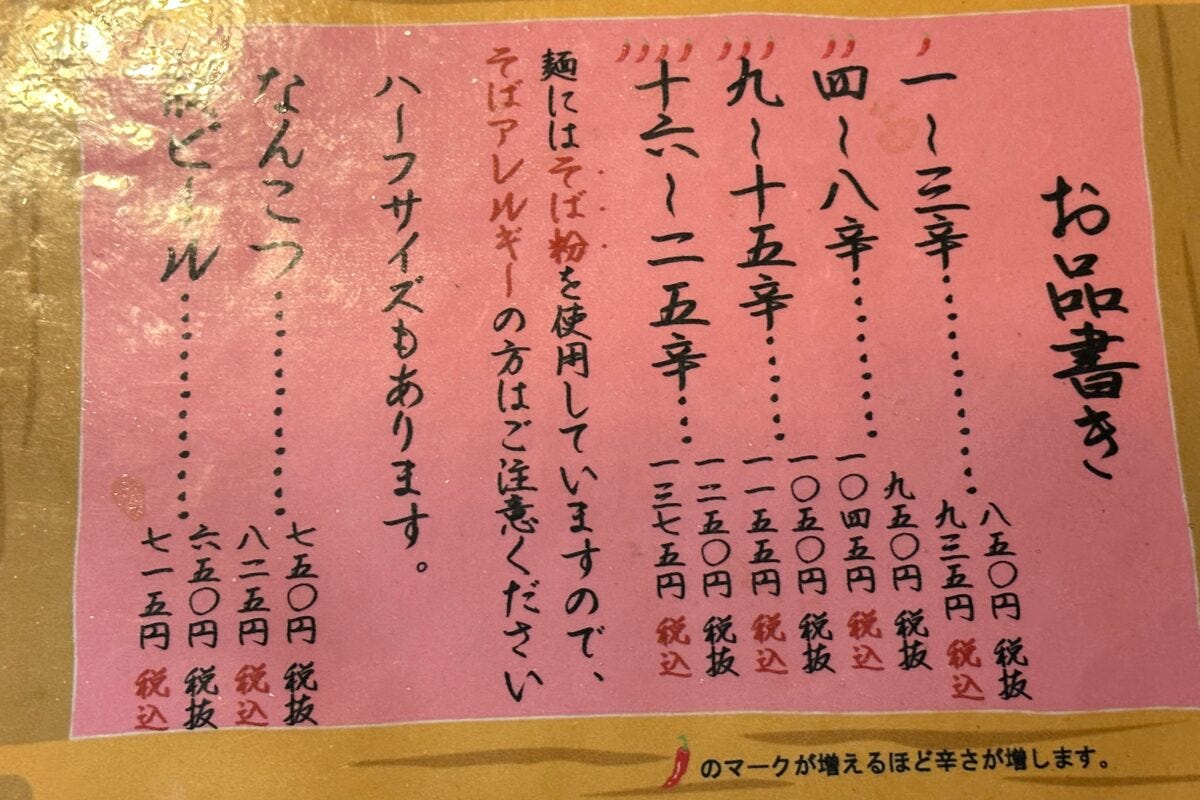 お品書き
一～三辛………… 八五〇円 税抜
九三五円 税込
四～八辛………… 九五〇円 税抜
一〇四五円 税込
九～十五辛……… 一〇五〇円 税抜
一一五五円 税込
十六～二五辛…… 一二五〇円 税抜
一三七五円 税込
麺にはそば粉を使用していますので、
そばアレルギーの方はご注意ください
ハーフサイズもあります。
なんこつ………… 七五〇円 税抜
八二五円 税込
瓶ビール………… 六五〇円 税抜
七一五円 税込
のマークが増えるほど辛さが増します。